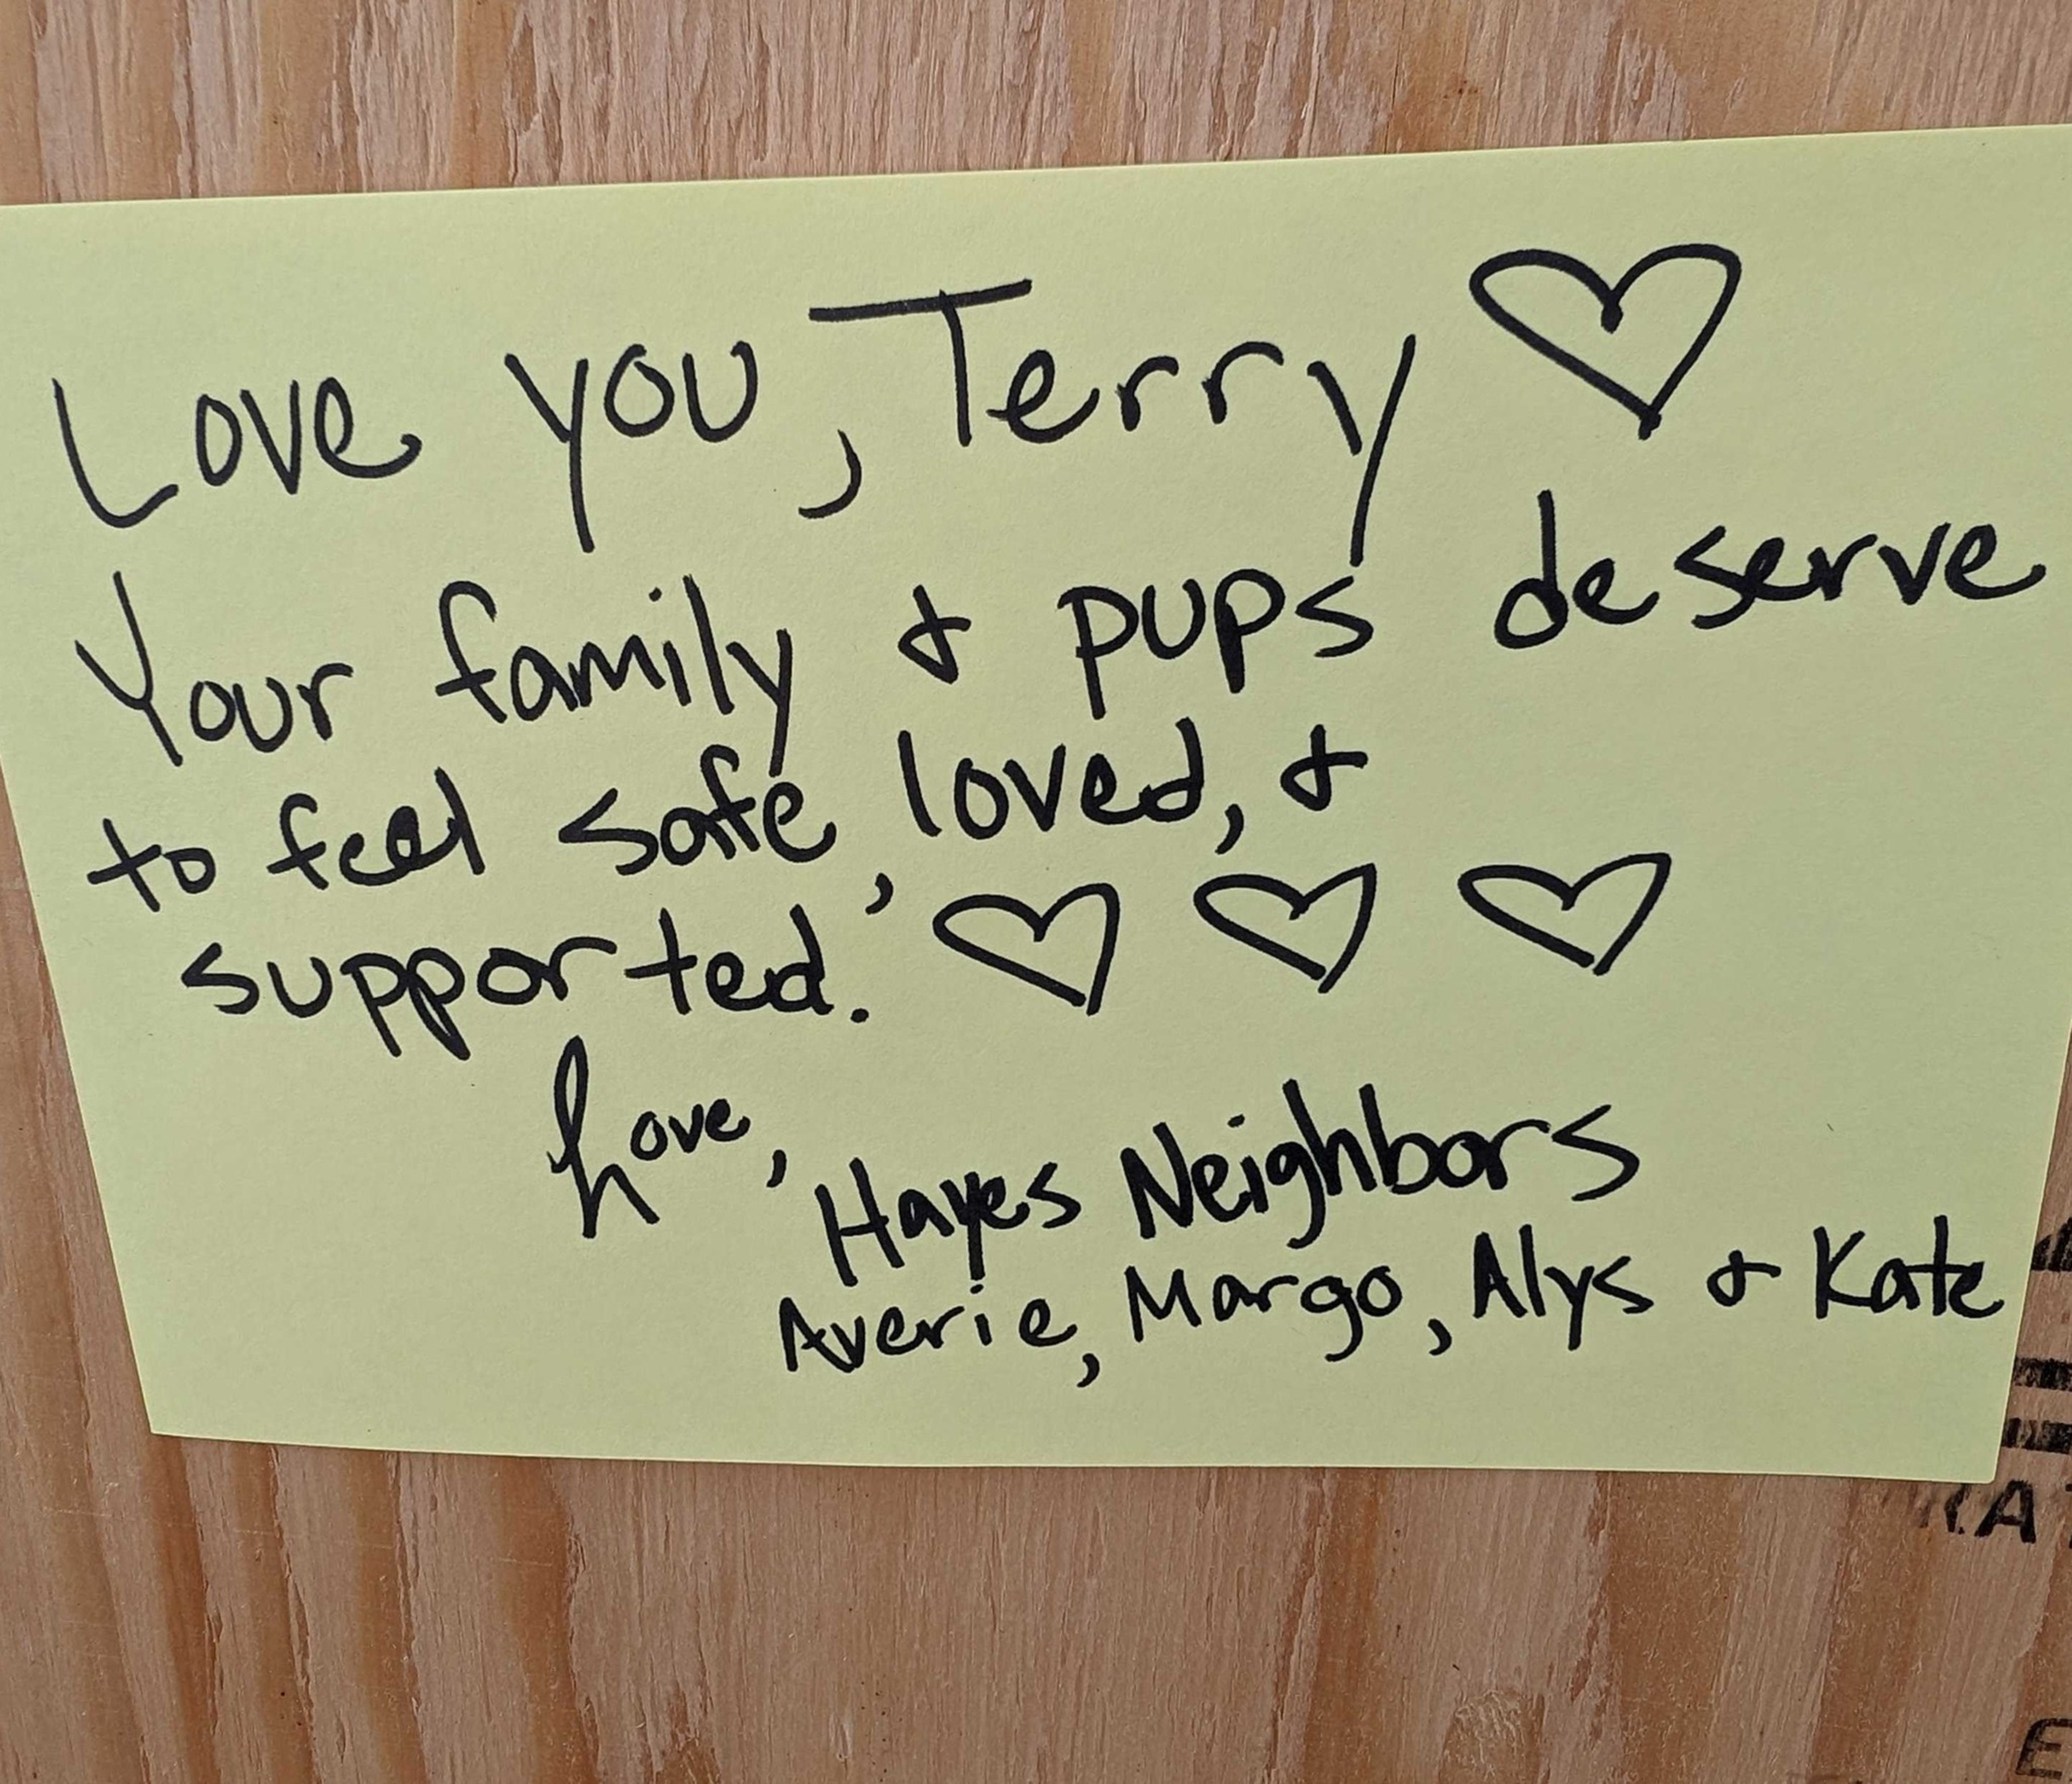 Love you, Terry ♡
Your family & pups deserve
to feel safe, loved, &
supported. ♡ ♡ ♡
Love,
Hayes Neighbors
Averie, Margo, Alys & Kate